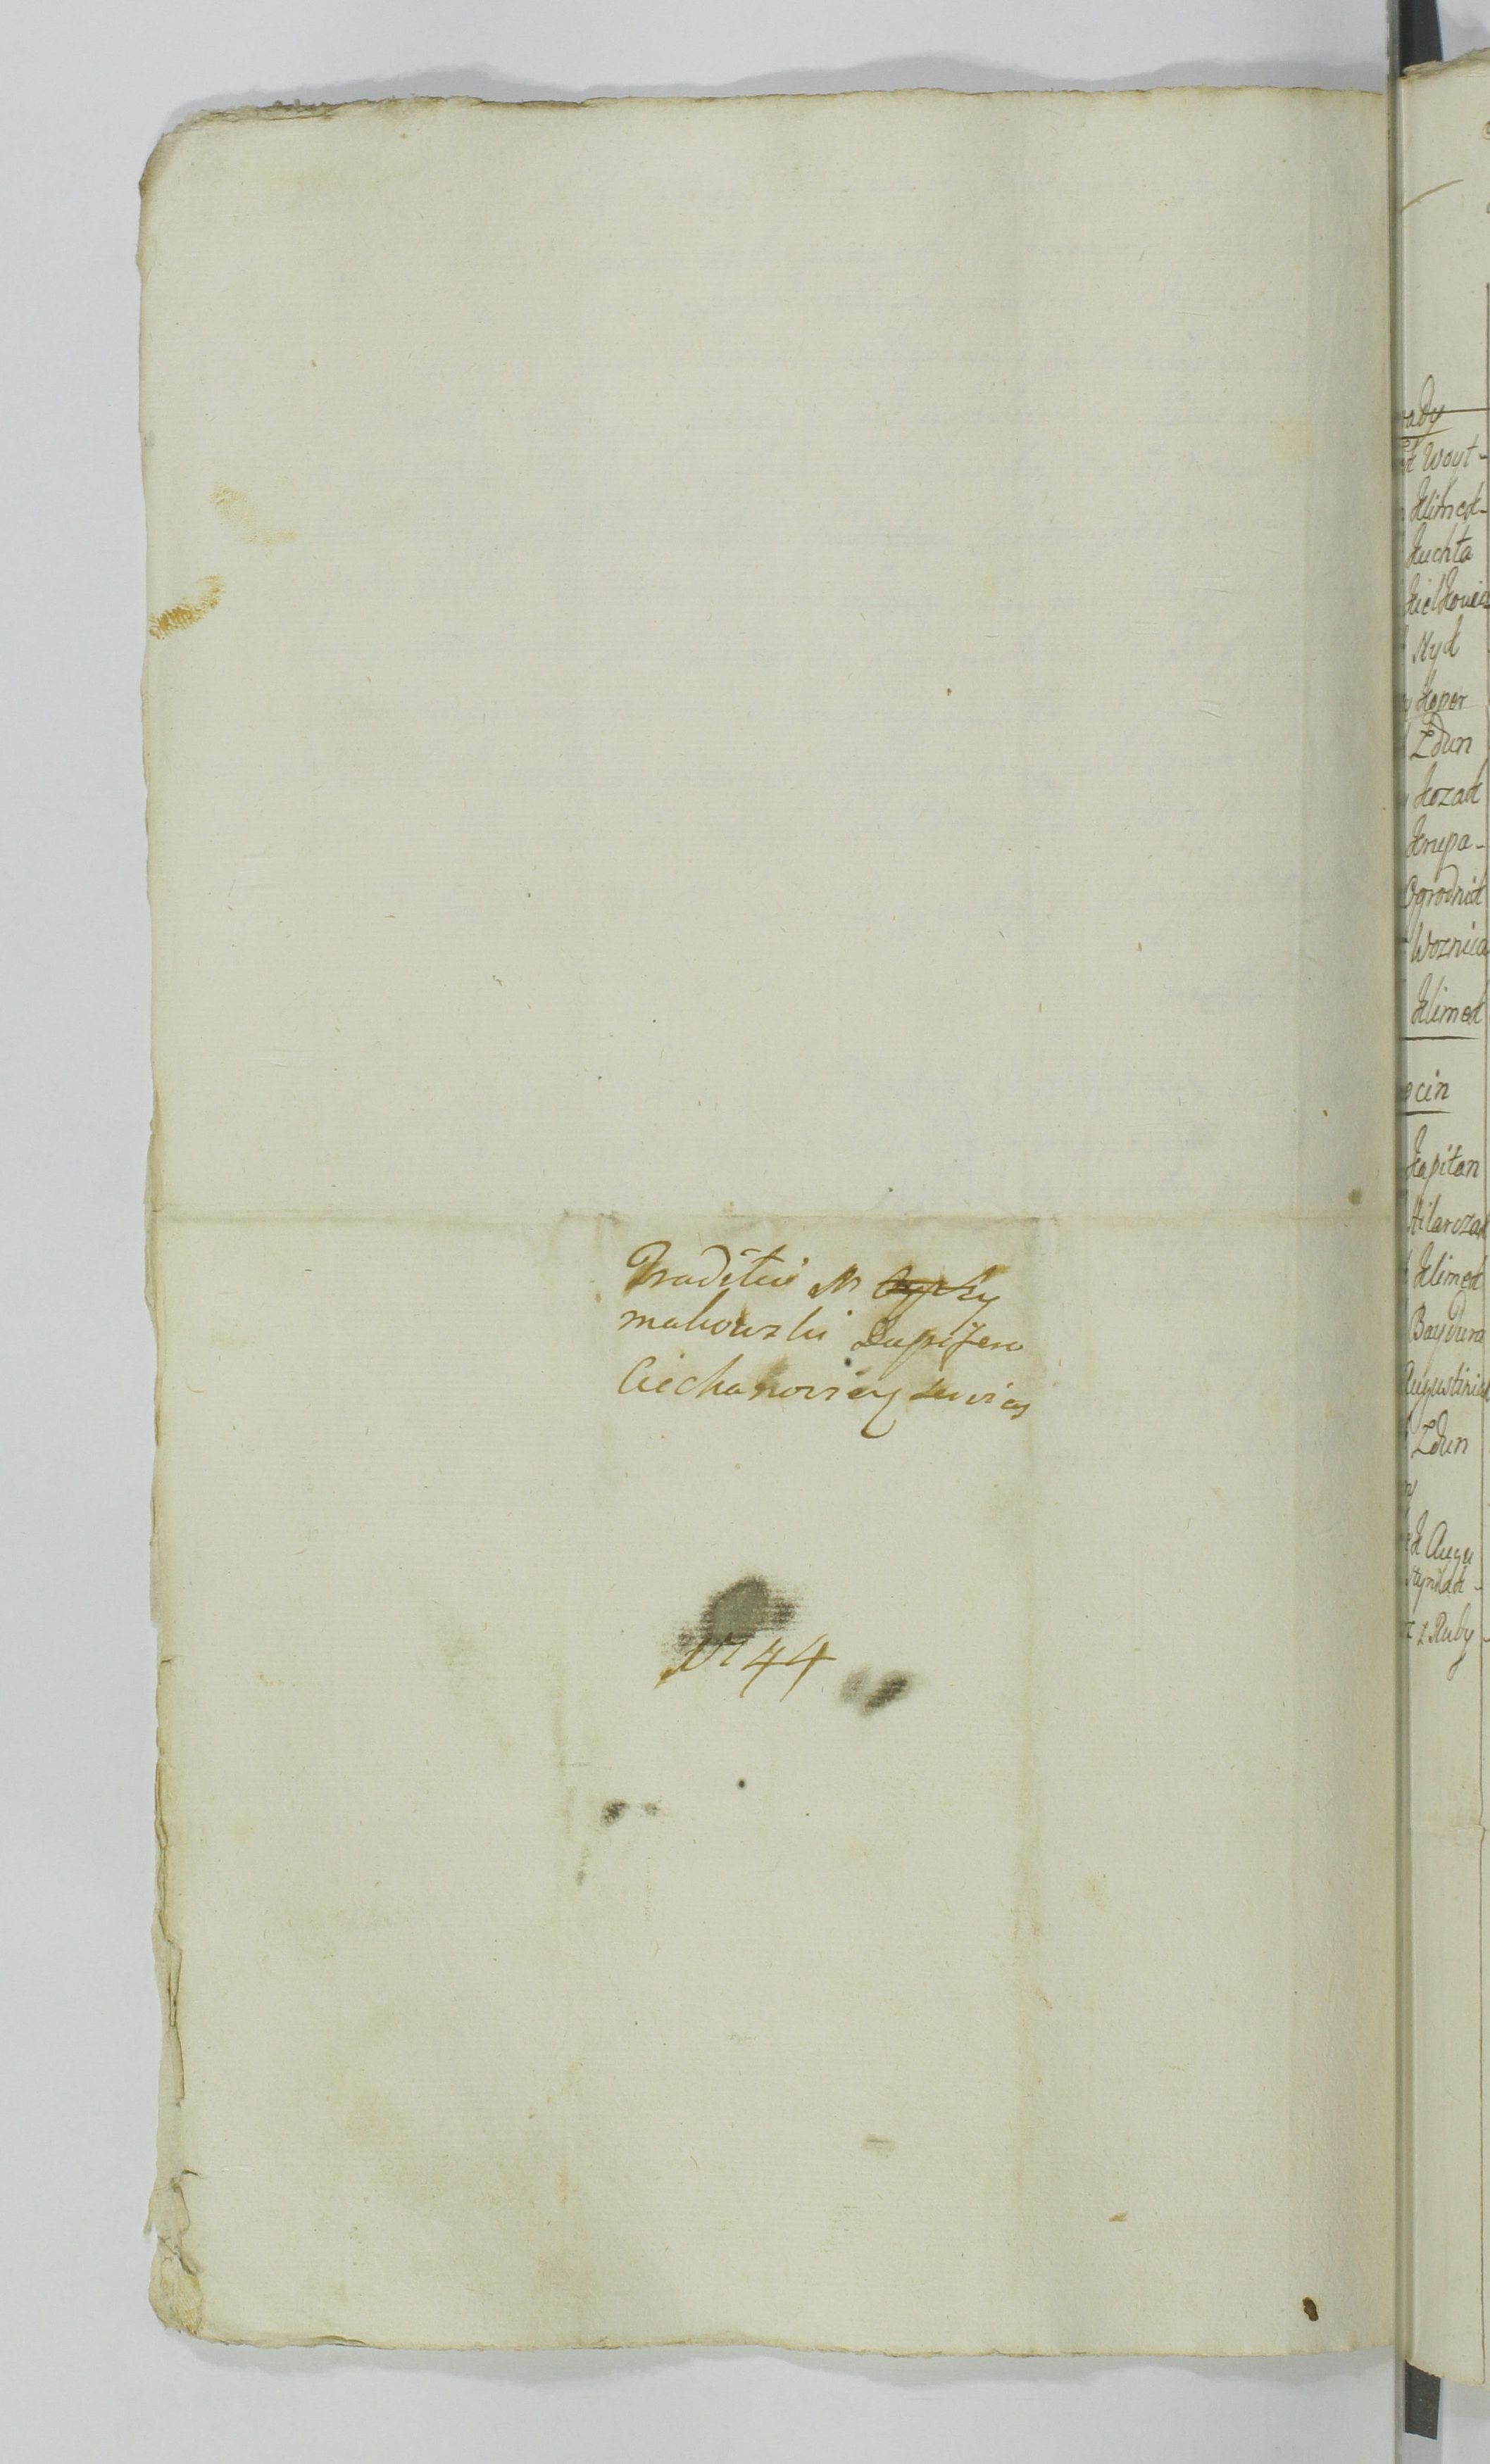 Traditū M
makowski Dapifero
Ciechanovien
N 44
ady
Woyt-
Klimek-
Kuchta
Kielkowicz
Nyk
Koper
Zdun
Kozak
Krupa-
Ogrodnik
Woznica
Klimek
cin
Kapitan
Hilarczak
Klimek
Baydura
Augustiniak
Zdun
k Augu
styniak-
z Rudy